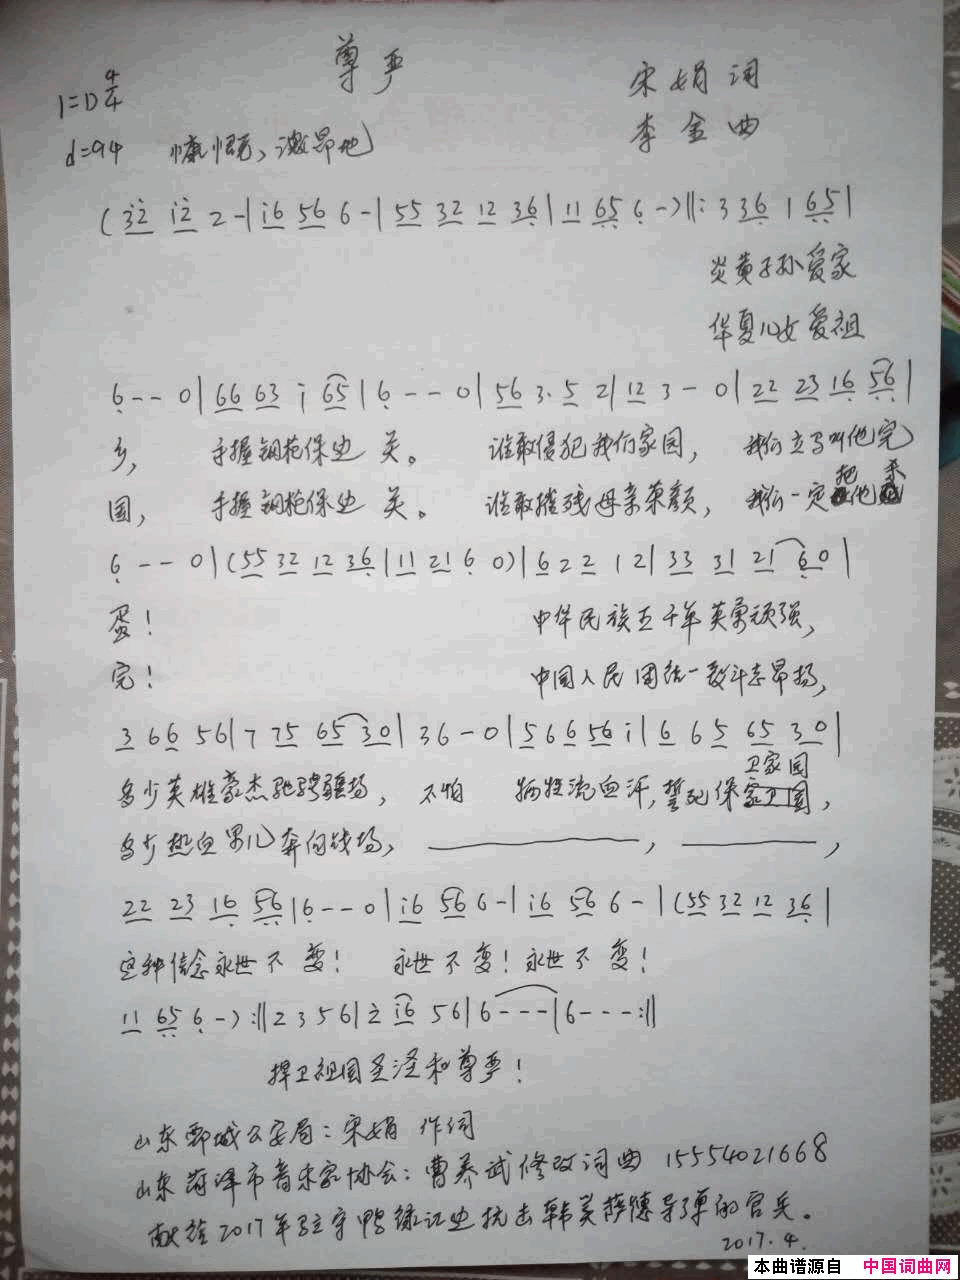 尊严
1=D 4/4
宋娟 词
♩=94 慷慨、激昂地
李金 曲
(3̲2̲̇ i̲2̲̇ 2 - | i̲6̲ 5̲6̲ 6 - | 5̲5̲ 3̲2̲ 1̲2̲ 3̲6̲ | 1̲1̲ 6̲5̲ 6 -) ‖: 3 3̲6̲ 1 6̲5̲ |
炎黄子孙爱家
华夏儿女爱祖
6 - - 0 | 6̲6̲ 6̲3̲ i 6̲5̲ | 6 - - 0 | 5̲6̲ 3. 5̲ 2 | 1̲2̲ 3 - 0 | 2̲2̲ 2̲3̲ 1̲6̲ 5̲6̲ |
乡, 手握钢枪保边关。 谁敢侵犯我们家园, 我们立马叫他完
国, 手握钢枪保边关。 谁敢摧残母亲荣颜, 我们一定把他
6 - - 0 | (5̲5̲ 3̲2̲ 1̲2̲ 3̲6̲ | 1̲1̲ 2̲1̲ 6 0) | 6̲ 2 2̲ 1 2 | 3̲3̲ 3̲1̲ 2̲1̲ 6̲0̲ |
蛋! 中华民族五千年英勇顽强,
完! 中国人民团结一致斗志昂扬,
3̲ 6 6̲ 5 6 | 7 7̲5̲ 6̲5̲ 3̲0̲ | 3 6 - 0 | 5̲ 6 6̲ 5̲6̲ i | 6̲ 6 5̲ 6̲5̲ 3̲0̲ |
卫家园
多少英雄豪杰驰骋疆场, 不怕 牺牲流血汗, 誓死保
多少热血男儿奔向战场,
2̲2̲ 2̲3̲ 1̲6̲ 5̲6̲ | 6 - - 0 | i̲6̲ 5̲6̲ 6 - | i̲6̲ 5̲6̲ 6 - | (5̲5̲ 3̲2̲ 1̲2̲ 3̲6̲ |
这种信念永世不变! 永世不变! 永世不变!
1̲1̲ 6̲5̲ 6 -) :‖ 2 3 5 6 | 2 i̲6̲ 5 6 | 6 - - - | 6 - - - :‖
捍卫祖国圣洁和尊严!
山东鄄城公安局: 宋娟 作词
山东菏泽市音乐家协会: 曹养武修改词曲 15554021668
献给2017年驻守鸭绿江边抗击韩美萨德导弹的官兵。
2017.4.
本曲谱源自 中国词曲网